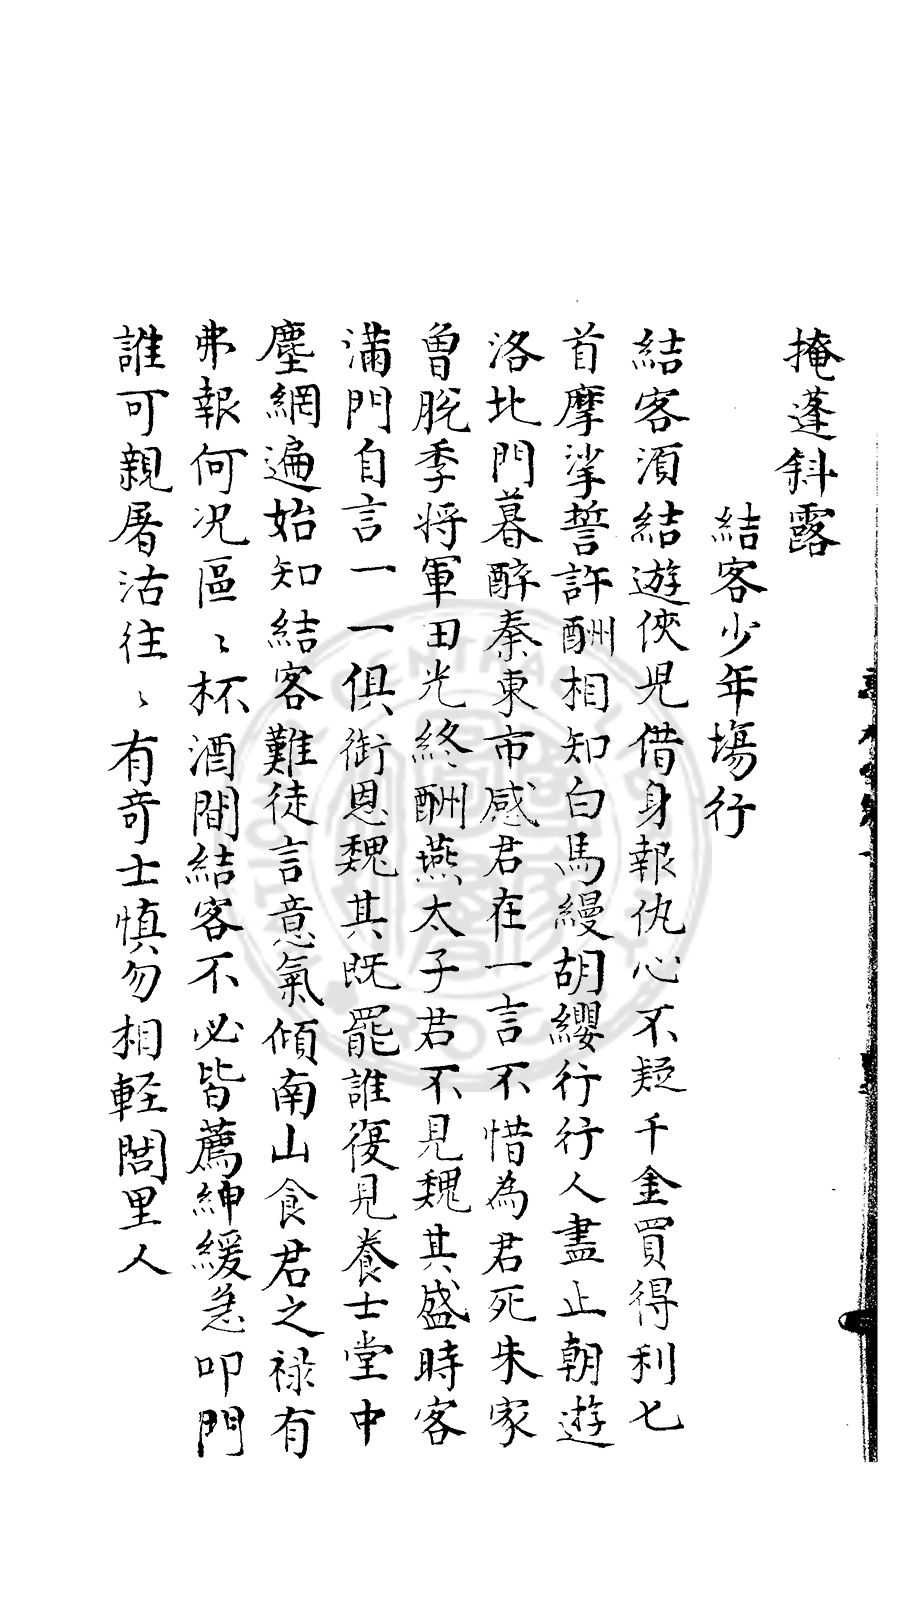 掩蓬斜露
結客少年場行
結客須結遊俠児借身報仇心不疑千金買得利七
首摩挲誓許酬相知白馬縵胡纓行行人盡止朝遊
洛北門暮醉秦東市感君在一言不惜為君死朱家
魯脱季将軍田光終酬燕太子君不見魏其盛時客
滿門自言一一俱銜恩魏其既罷誰復見養士堂中
塵網遍始知結客難徒言意氣傾南山食君之禄有
弗報何况區〻杯酒間結客不必皆薦紳緩急叩門
誰可親屠沽往〻有奇士慎勿相軽閭里人